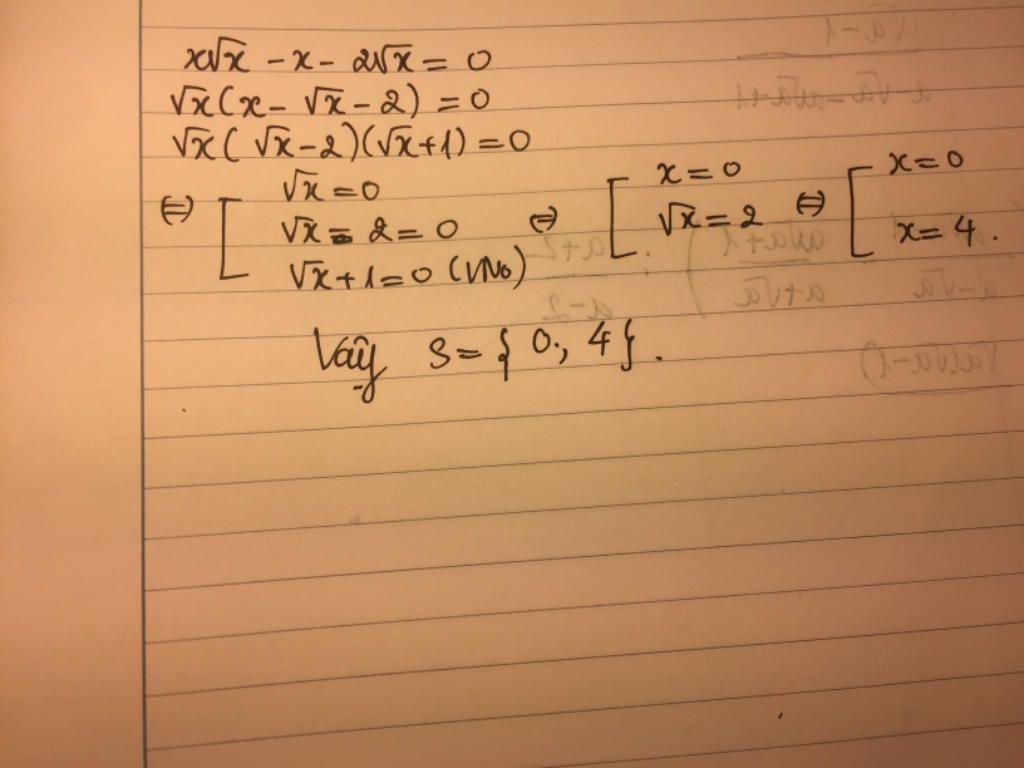 x√x - x - 2√x = 0
√x(x - √x - 2) = 0
√x(√x - 2)(√x + 1) = 0
⇔ [ √x = 0
√x - 2 = 0
√x + 1 = 0 (VNo)
⇔ [ x = 0
√x = 2
⇔ [ x = 0
x = 4.
Vậy S = { 0; 4 }.